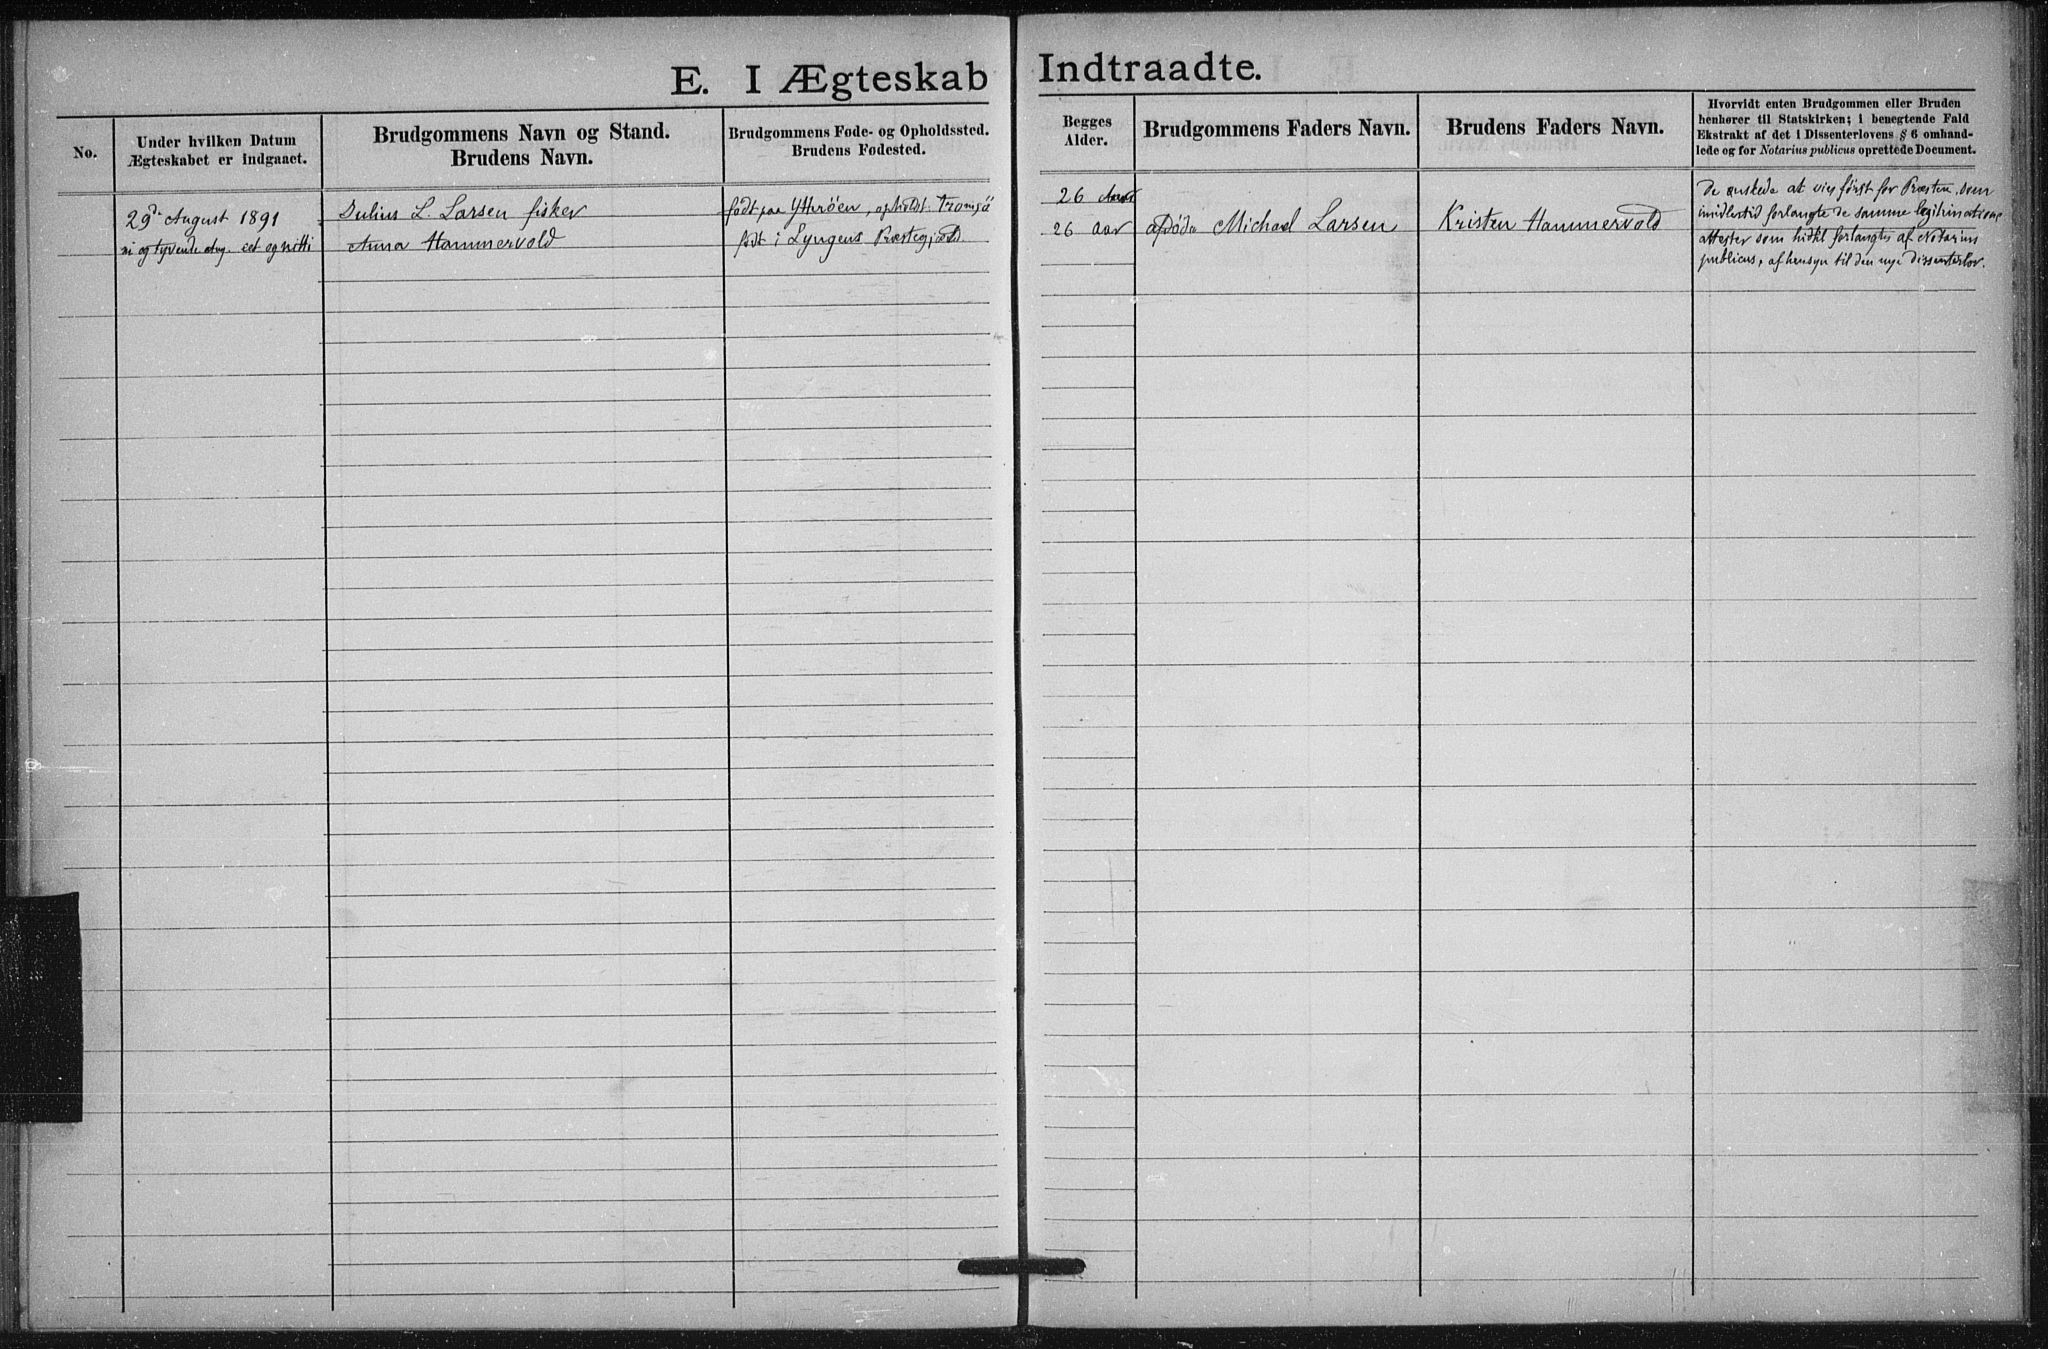 E. I Ægteskab Indtraadte.
No.
Under hvilken Datum
Ægteskabet er indgaaet.
Brudgommens Navn og Stand.
Brudens Navn.
Brudgommens Føde- og Opholdssted.
Brudens Fødested.
Begges
Alder.
Brudgommens Faders Navn.
Brudens Faders Navn.
Hvorvidt enten Brudgommen eller Bruden
henhører til Statskirken; i benegtende Fald
Ekstrakt af det i Dissenterlovens § 6 omhand-
lede og for Notarius publicus oprettede Document.
29de August 1891
ni og tyvende Aug. eet og nitti
Julius L. Larsen fisker
Anna Hammervold
født paa Ytterøen, opholdt. Tromsö
født i Lyngens Præstegjæld.
26 Aar
26 aar
afdöde Michael Larsen
Kristen Hammervold
De ønskede at vies først for Præsten, som
imidlertid forlangte de samme legitimations
attester som hidtil forlangtes af Notarius
publicus, af hensyn til den nye Dissenterlov.